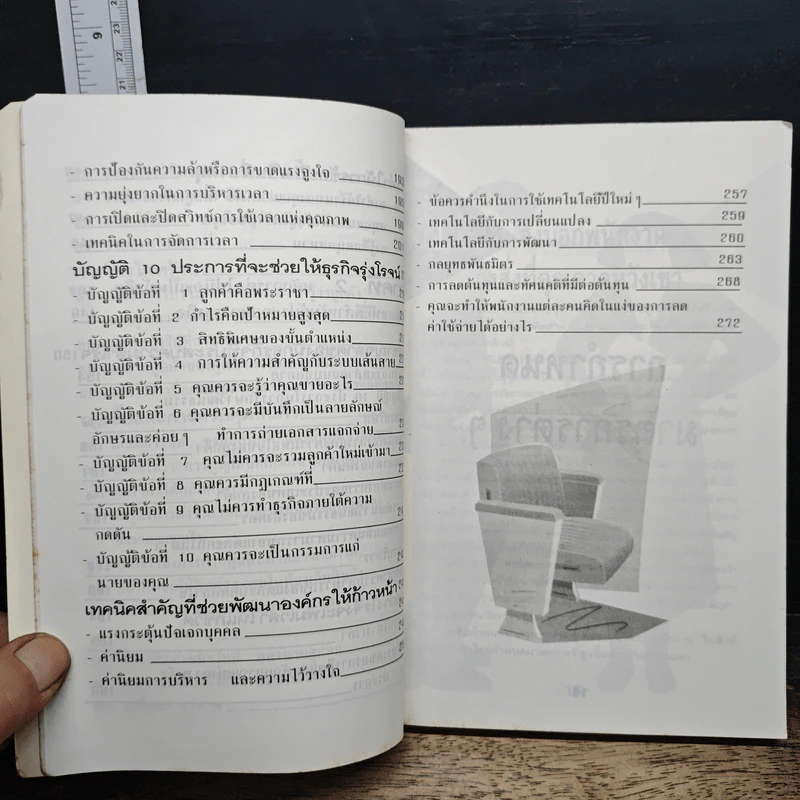 9
23
22
21
- การป้องกันความล้าหรือการขาดแรงจูงใจ
- ความยุ่งยากในการบริหารเวลา
- การเปิดและปิดสวิทช์การใช้เวลาแห่งคุณภาพ
- เทคนิคในการจัดการเวลา
บัญญัติ 10 ประการที่จะช่วยให้ธุรกิจรุ่งโรจน์
- บัญญัติข้อที่ 1 ลูกค้าคือพระราชา
- บัญญัติข้อที่ 2 กำไรคือเป้าหมายสูงสุด
- บัญญัติข้อที่ 3 สิทธิพิเศษของขั้นตำแหน่ง
- บัญญัติข้อที่ 4 การให้ความสำคัญกับระบบเส้นสาย
- บัญญัติข้อที่ 5 คุณควรจะรู้ว่าคุณขายอะไร
- บัญญัติข้อที่ 6 คุณควรจะมีบันทึกเป็นลายลักษณ์
อักษรและค่อยๆ ทำการถ่ายเอกสารแจกจ่าย
- บัญญัติข้อที่ 7 คุณไม่ควรจะรวมลูกค้าใหม่เข้ามา
- บัญญัติข้อที่ 8 คุณควรมีกฎเกณฑ์ที่
- บัญญัติข้อที่ 9 คุณไม่ควรทำธุรกิจภายใต้ความ
กดดัน
- บัญญัติข้อที่ 10 คุณควรจะเป็นกรรมการแก่
นายของคุณ
เทคนิคสำคัญที่ช่วยพัฒนาองค์กรให้ก้าวหน้า
- แรงกระตุ้นปัจเจกบุคคล
- ค่านิยม
- ค่านิยมการบริหาร และความไว้วางใจ
- ข้อควรคำนึงในการใช้เทคโนโลยีปีใหม่ๆ 257
- เทคโนโลยีกับการเปลี่ยนแปลง 259
- เทคโนโลยีกับการพัฒนา 260
- กลยุทธพันธมิตร 263
- การลดต้นทุนและทัศนคติที่มีต่อต้นทุน 268
- คุณจะทำให้พนักงานแต่ละคนคิดในแง่ของการลด
ค่าใช้จ่ายได้อย่างไร 272